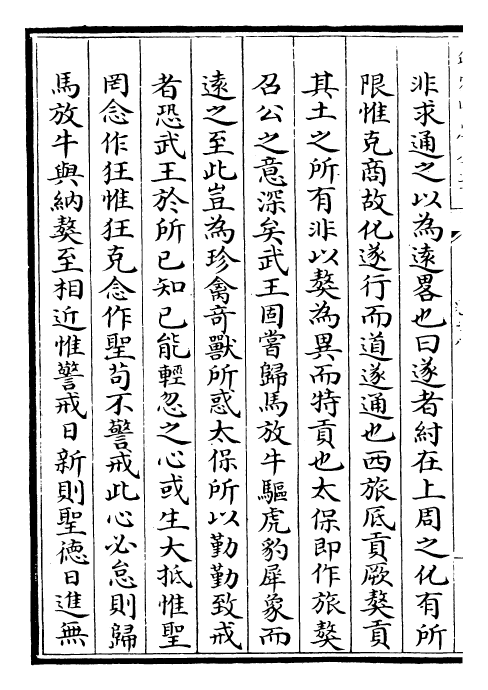 非求通之以為逺畧也曰遂者紂在上周之化有所
限惟克商故化遂行而道遂通也西旅厎貢厥獒貢
其土之所有非以獒為異而特貢也太保即作旅獒
召公之意深矣武王固嘗歸馬放牛驅虎豹犀象而
逺之至此豈為珍禽竒獸所惑太保所以勤勤致戒
者恐武王於所已知已能輕忽之心或生大抵惟聖
罔念作狂惟狂克念作聖茍不警戒此心必怠則歸
馬放牛與納獒至相近惟警戒日新則聖徳日進無